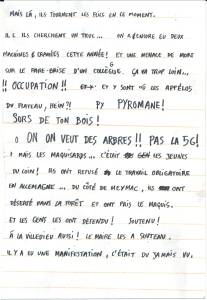 MAIS LÀ, ILS TOURNENT LES FLICS EN CE MOMENT.
ILS CHERCHENT UN TRUC... ON A ENCORE EU DEUX
MACHINES CRAMÉES CETTE ANNÉE! ET UNE MENACE DE MORT
SUR LE PARE-BRISE D'UN COLLÈGUE. ÇA VA TROP LOIN...
!! OCCUPATION!! ET Y SONT LES APPELOS
DU PLATEAU, HEIN?! PY PYROMANE!
SORS DE TON BOIS!
ON ON VEUT DES ARBRES!! PAS LA 5G!
MAIS LES MAQUISARDS... C'ÉTAIT LES JEUNES
DU COIN! ILS ONT REFUSÉ LE TRAVAIL OBLIGATOIRE
EN ALLEMAGNE... DU CÔTÉ DE MEYMAC, ILS ONT
DÉSERTÉ DANS LA FORÊT ET ONT PRIS LE MAQUIS.
ET LES GENS LES ONT DÉFENDU! SOUTENU!
À LA VILLEDIEU AUSSI! LE MAIRE LES A SOUTENU.
IL Y A EU UNE MANIFESTATION, C'ÉTAIT DU JAMAIS VU.